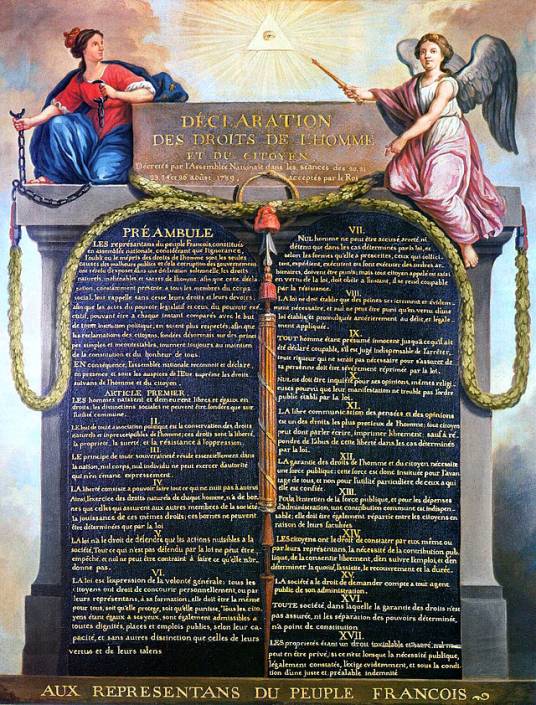 DÉCLARATION
DES DROITS DE L'HOMME
ET DU CITOYEN,
Décrétés par l'Assemblée Nationale dans les séances des 20, 21,
23, 24 et 26 août 1789, acceptés par le Roi
PRÉAMBULE
LES représentans du peuple François, constitués
en assemblée nationale, considérant que l'ignorance,
l'oubli ou le mépris des droits de l'homme sont les seules
causes des malheurs publics et de la corruption des gouvernemens
ont résolu d'exposer dans une déclaration solemnelle, les droits
naturels, inaliénables et sacrés de l'homme: afin que cette décla-
ration, constamment présente a tous les membres du corps
social, leur rappelle sans cesse leurs droits et leurs devoirs;
afin que les actes du pouvoir législatif et ceux du pouvoir exé-
cutif, pouvant être a chaque instant comparés avec le but
de toute institution politique, en soient plus respectés; afin que
les réclamations des citoyens, fondées désormais sur des princi-
pes simples et incontestables, tournent toujours au maintien
de la constitution et du bonheur de tous.
EN conséquence, l'assemblée nationale reconnoit et déclare,
en presence et sous les auspices de l'Etre suprême les droits
suivans de l'homme et du citoyen.
ARTICLE PREMIER.
LES hommes naissent et demeurent libres et égaux en
droits; les distinctions sociales ne peuvent être fondées que sur
l'utilité commune.
II.
LE but de toute association politique est la conservation des droits
naturels et imprescriptibles de l'homme; ces droits sont la liberté,
la propriété, la sureté, et la résistance à l'oppression.
III.
LE principe de toute souveraineté réside essentiellement dans
la nation, nul corps, nul individu ne peut exercer d'autorité
qui n'en émane expressément.
IV.
LA liberté consiste a pouvoir faire tout ce qui ne nuit pas à autrui
Ainsi, l'exercice des droits naturels de chaque homme, n'a de bor-
nes que celles qui assurent aux autres membres de la société
la jouissance de ces mêmes droits; ces bornes ne peuvent
être déterminées que par la loi
V.
LA loi n'a le droit de défendre que les actions nuisibles à la
société. Tout ce qui n'est pas défendu par la loi ne peut être
empêché, et nul ne peut être contraint à faire ce qu'elle n'or-
donne pas.
VI.
LA loi est l'expression de la volonté générale; tous les
citoyens ont droit de concourir personnellement, ou par
leurs représentans, à sa formation; elle doit être la même
pour tous, soit qu'elle protege, soit qu'elle punisse. Tous les cito-
yens étant égaux à ses yeux, sont également admissibles à
toutes dignités, places et emplois publics, selon leur ca-
pacité, et sans autres distinction que celles de leurs
vertus et de leurs talens
VII.
NUL homme ne peut être accusé, arreté, ni
détenu que dans les cas déterminés par la loi, et
selon les formes qu'elle a prescrites, ceux qui sollici-
tent, expédient, exécutent ou font exécuter des ordres ar-
bitraires, doivent être punis; mais tout citoyen appelé ou saisi
en vertu de la loi, doit obéir a l'instant, il se rend coupable
par la résistance.
VIII.
LA loi ne doit établir que des peines strictement et évidem-
ment nécessaire, et nul ne peut être puni qu'en vertu d'une
loi établie et promulguée antérieurement au délit, et légale-
ment appliquée.
IX.
TOUT homme étant présumé innocent jusqu'à ce qu'il ait
été déclaré coupable, s'il est jugé indispensable de l'arrêter,
toute rigueur qui ne serait pas nécessaire pour s'assurer de
sa personne doit être sévérement réprimée par la loi.
X.
NUL ne doit être inquiété pour ses opinions, mêmes religi-
euses pourvu que leur manifestation ne trouble pas l'ordre
public établi par la loi.
XI.
LA libre communication des pensées et des opinions
est un des droits les plus precieux de l'homme; tout citoyen
peut donc parler, écrire, imprimer librement; sauf à ré-
pondre de l'abus de cette liberté dans les cas déterminés
par la loi.
XII.
LA garantie des droits de l'homme et du citoyen nécessite
une force publique; cette force est donc instituée pour l'avan-
tage de tous, et non pour l'utilité particuliere de ceux a qui
elle est confiée.
XIII.
Pour l'entretien de la force publique, et pour les dépenses
d'administration, une contribution commune est indispen-
sable; elle doit être également répartie entre les citoyens en
raison de leurs facultées
XIV.
LES citoyens ont le droit de constater par eux même ou
par leurs représentans, la nécessité de la contribution pub-
lique, de la consentir librement, d'en suivre l'emploi, et d'en
déterminer la quotité, l'assiette, le recouvrement et la durée.
XV.
LA société a le droit de demander compte a tout agent
public de son administration.
XVI.
TOUTE société, dans laquelle la garantie des droits n'est
pas assurée, ni les séparation des pouvoirs déterminée,
n'a point de constitution
XVII.
LES proprietés étant un droit inviolable et sacré, nul ne
peut en être privé, si ce n'est lorsque la nécessité publique,
légalement constatée, l'exige evidemment, et sous la condi-
tion d'une juste et préalable indemnité
AUX REPRESENTANS DU PEUPLE FRANCOIS